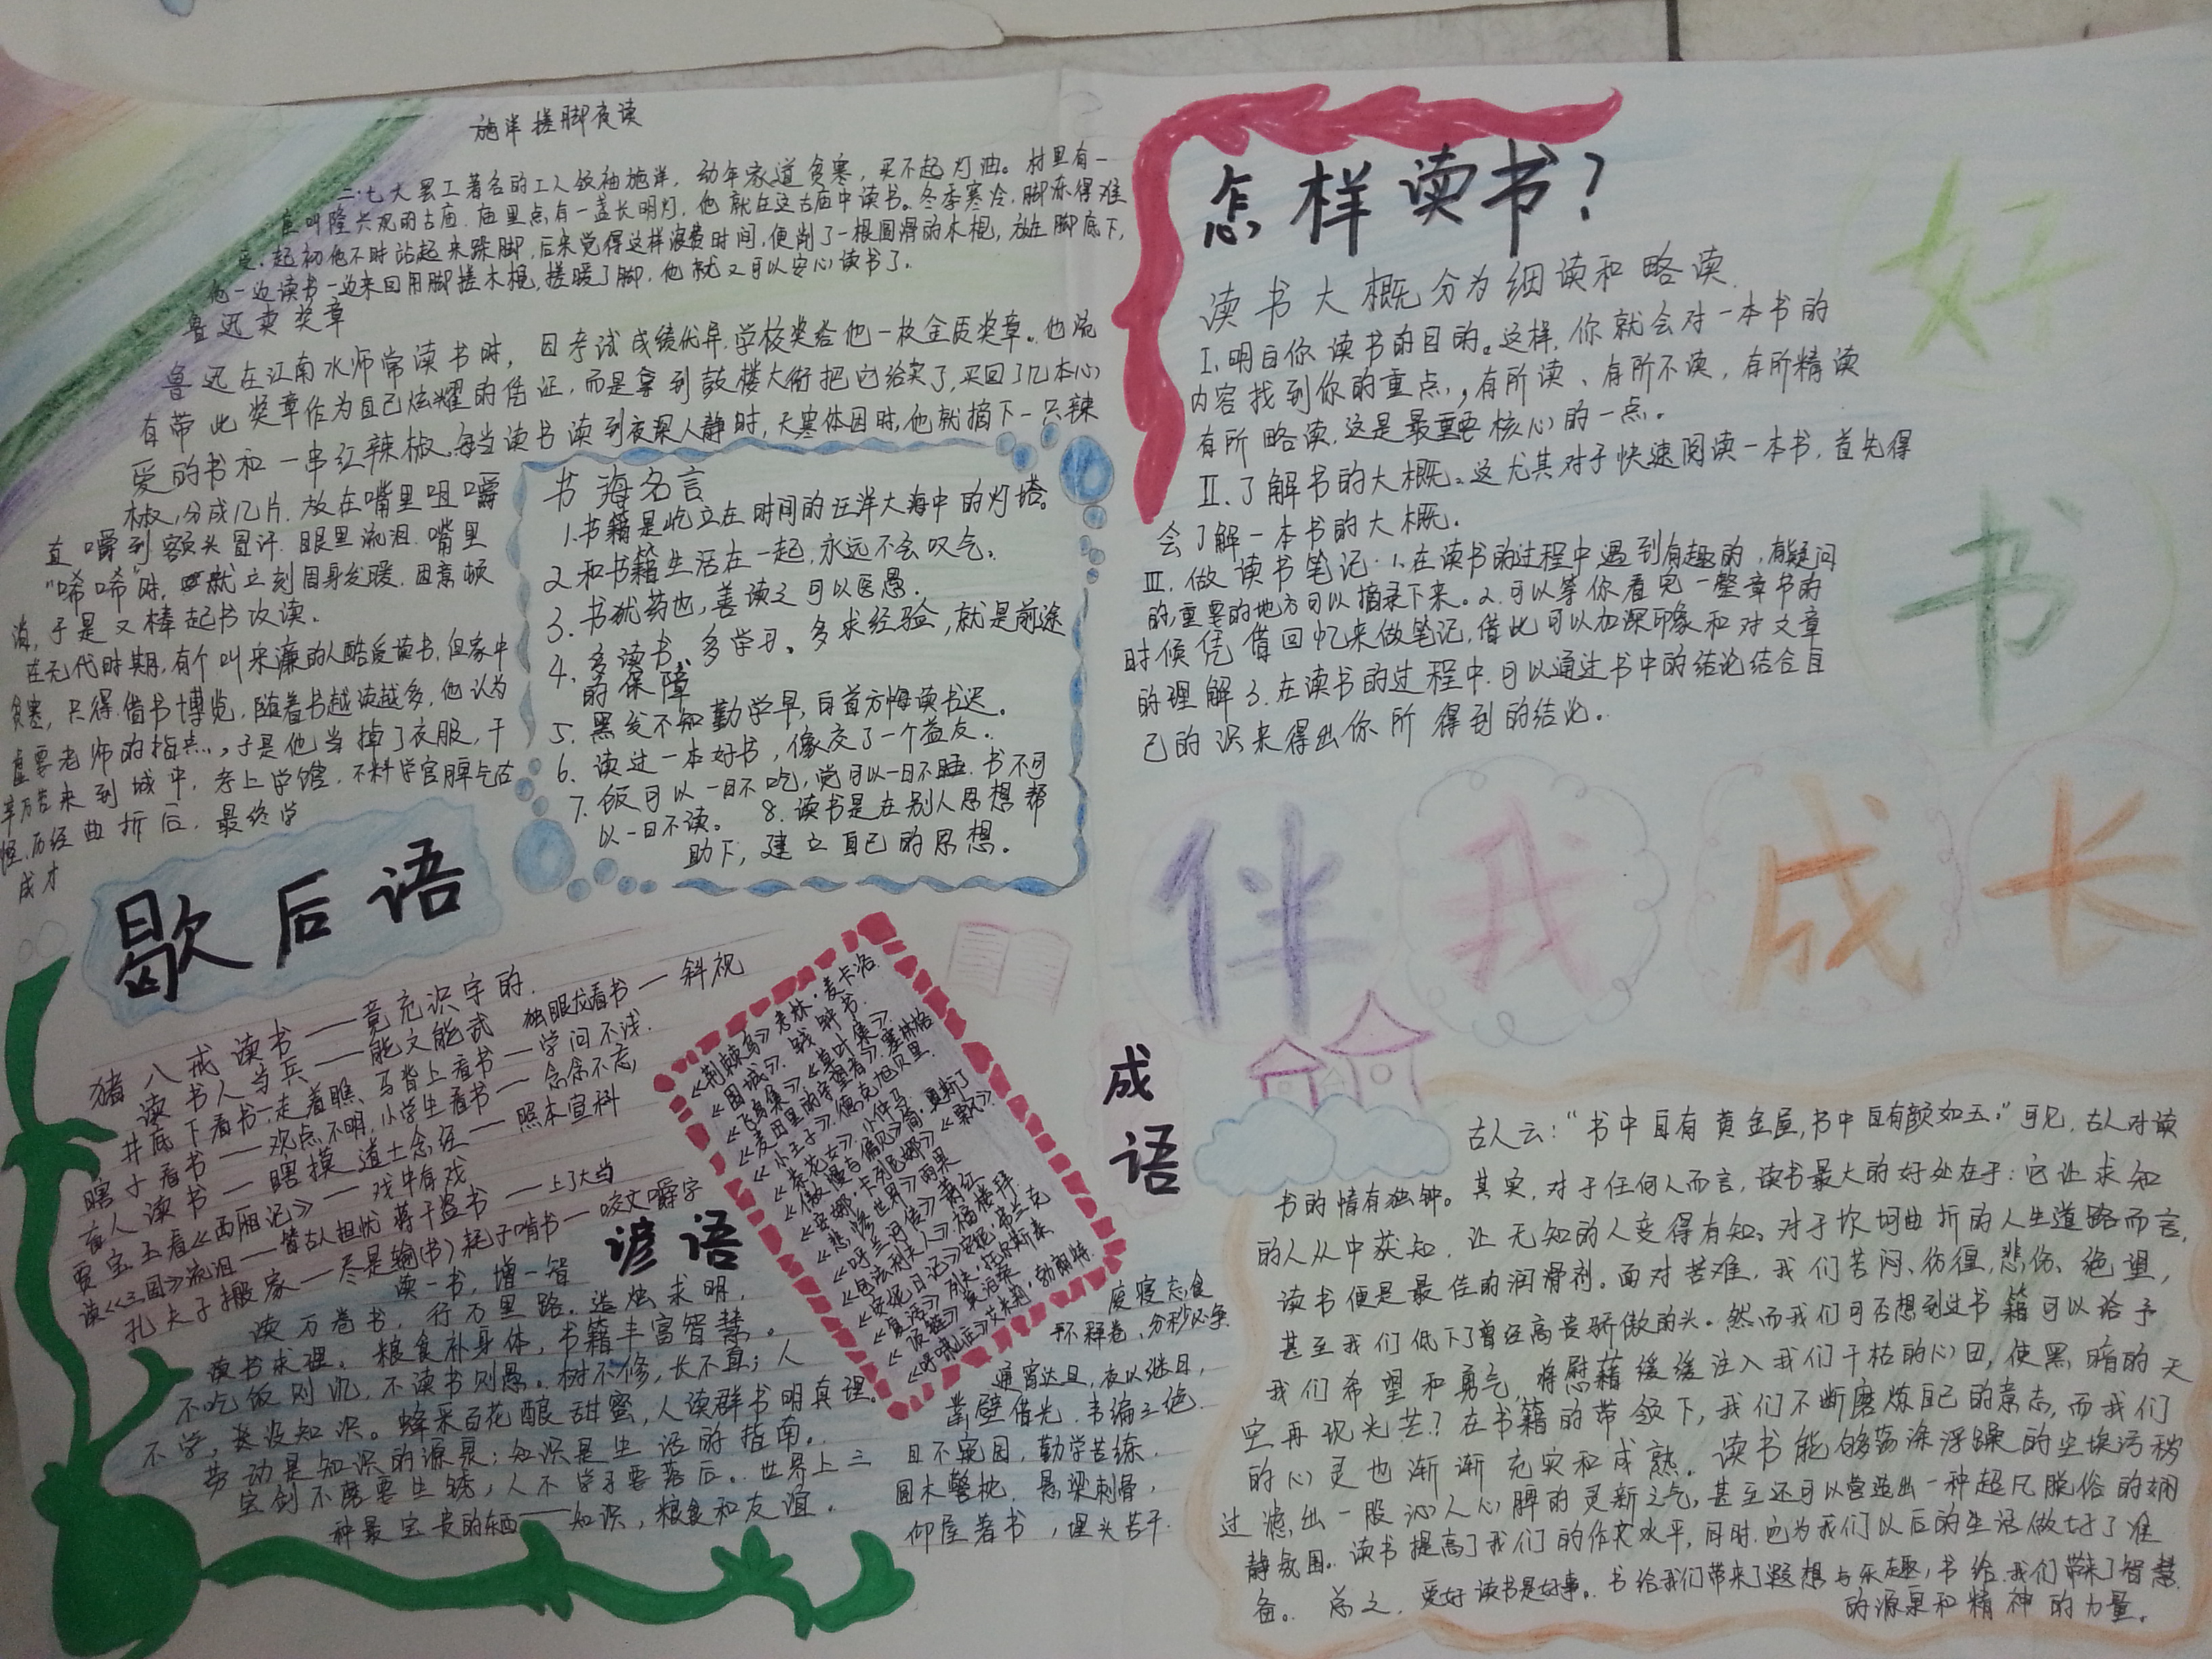 施洋搓脚夜读
二·七大罢工著名的工人领袖施洋，幼年家道贫寒，买不起灯油。村里有一
座叫隆兴观的古庙．庙里点有一盏长明灯，他就在这古庙中读书。冬季寒冷，脚冻得难
受．起初他不时站起来跺脚，后来觉得这样浪费时间，便削了一根圆滑的木棍，放在脚底下，
他一边读书一边来回用脚搓木棍，搓暖了脚，他就又可以安心读书了．
鲁迅卖奖章
鲁迅在江南水师常读书时，因考试成绩优异，学校奖给他一枚金质奖章。他流
有带此奖章作为自己炫耀的凭证，而是拿到鼓楼大街把它给卖了，买回了几本心
爱的书和一串红辣椒，每当读书读到夜深人静时，天寒体困时，他就摘下一只辣
椒，分成几片．放在嘴里咀嚼
直嚼到额头冒汗．眼里流泪．嘴里
"唏唏"时，就立刻周身发暖．困意顿
消，于是又棒起书攻读．
在元代时期，有个叫宋濂的人酷爱读书，但家中
贫寒，只得借书博览，随着书越读越多，他认为
虚要老师的指点，于是他当掉了衣服，千
辛万苦来到城中，考上学馆，不料学官脾气古
怪．历经曲折后，最终学
成才
书海名言
1.书籍是屹立在时间的汪洋大海中的灯塔。
2 和书籍生活在一起，永远不会叹气。
3．书犹药也，善读之可以医愚．
4．多读书、多学习、多求经验，就是前途
的保障
5．黑发不知勤学早，白首方悔读书迟．
6．读过一本好书，像交了一个益友．
7．饭可以一日不吃，觉可以一日不睡．书不可
以一日不读。 8．读书是在别人思想帮
助下，建立自己的思想．
歇后语
猪八戒读书——竟充识字的．
读书人当兵——能文能武 独眼龙看书——斜视
井底下看书—走着瞧、马背上看书—学问不浅．
瞎子看书——观点不明，小学生看书——念念不忘，
盲人读书—瞎摸 道士念经——照本宣科
贾宝玉看《西厢记》——戏中有戏
读《三国》流泪——替古人担忧 蒋干盗书——上了大当
孔夫子搬家——尽是输(书) 耗子啃书——咬文嚼字
谚语
读一书，增一智
读万卷书，行万里路．造烛求明，
读书求理。粮食补身体，书籍丰富智慧。
不吃饭则饥，不读书则愚。树不修，长不直；人
不学，类没知识。蜂采百花酿甜蜜，人读群书明真理。
劳动是知识的源泉；知识是生活的指南。
宝剑不磨要生锈，人不学习要落后。世界上三
种最宝贵的东西——知识，粮食和友谊．
《荆棘鸟》考林·麦卡洛
《围城》．钱钟书．
《飞鸟集》．《草叶集》．
《麦田里的守望者》．塞林格
《小王子》．德克旭贝里．
《茶花女》．小仲马
《傲慢与偏见》简·奥斯丁
《安娜·卡列尼娜》．《飘》
《悲惨世界》雨果
《呼兰河传》萧红
《包法利夫人》福楼拜．
《安妮日记》安妮·弗兰克
《复活》列夫·托尔斯泰
《呼啸山庄》艾米莉·勃朗特
成语
废寝忘食
手不释卷，分秒必争
通宵达旦，夜以继日，
凿壁借光．韦编三绝．
目不窥园，勤学苦练．
圆木警枕．悬梁刺骨，
仰屋著书，埋头苦干．
怎样读书？
读书大概分为细读和略读．
Ⅰ.明白你读书的目的。这样，你就会对一本书的
内容找到你的重点，有所读、有所不读，有所精读
有所略读，这是最重要核心的一点．
Ⅱ.了解书的大概．这尤其对于快速阅读一本书．首先得
会了解一本书的大概．
Ⅲ．做读书笔记．1．在读书的过程中遇到有趣的，有疑问
的，重要的地方可以摘录下来。2．可以等你看完一整章书的
时候凭借回忆来做笔记，借此可以加深印象和对文章
的理解 3．在读书的过程中．可以通过书中的结论结合自
己的识来得出你所得到的结论．
好
书
伴我成长
古人云："书中自有黄金屋，书中自有颜如玉．"可见，古人对读
书的情有独钟。其实，对于任何人而言，读书最大的好处在于：它让求知
的人从中获知．让无知的人变得有知。对于坎坷曲折的人生道路而言，
读书便是最佳的润滑剂。面对苦难．我们苦闷、彷徨，悲伤、绝望，
甚至我们低下了曾经高贵骄傲的头．然而我们可否想到过书籍可以给予
我们希望和勇气．将慰藉缓缓注入我们干枯的心田，使黑暗的天
空再现光芒？在书籍的带领下，我们不断磨炼自己的意志，而我们
的心灵也渐渐充实和成熟．读书能够荡涤浮躁的尘埃污秽
过滤出一股沁人心脾的灵新之气，甚至还可以营造出一种超凡脱俗的娴
静氛围．读书提高了我们的作文水平，同时．也为我们以后的生活做好了准
备。总之，爱好读书是好事．书给我们带来了遐想与乐趣，书给我们带来了智慧
的源泉和精神的力量．